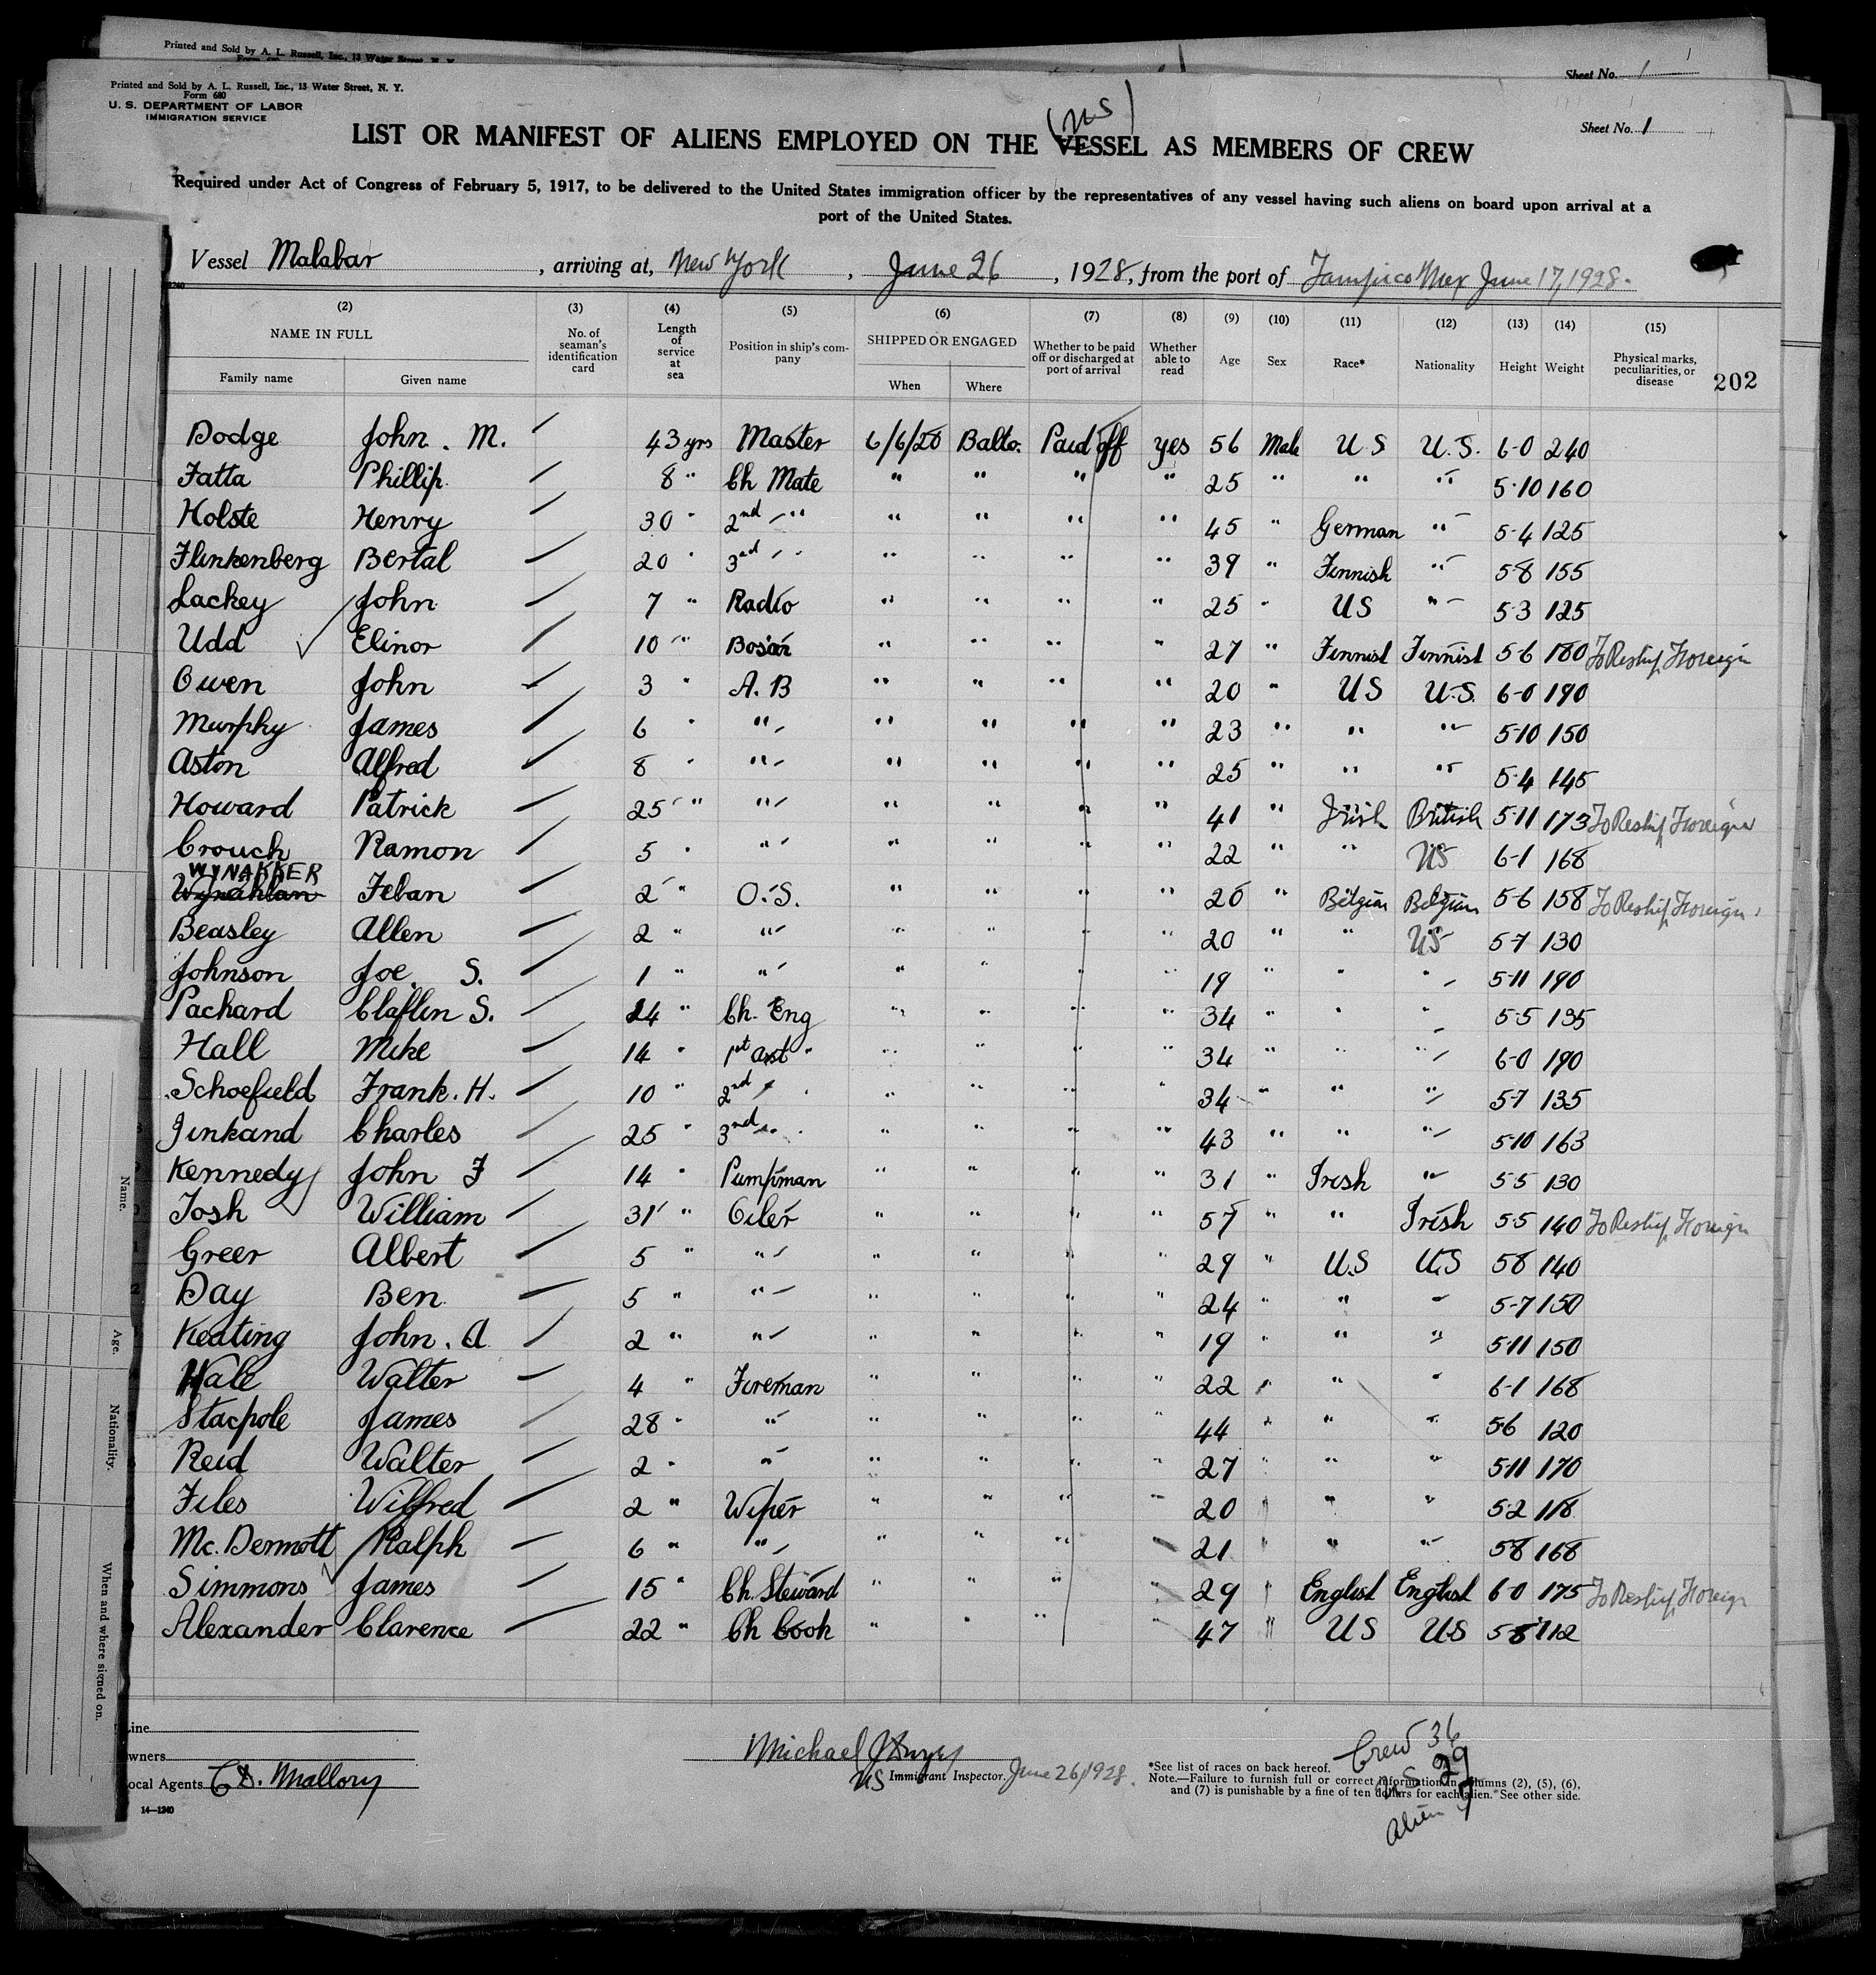 Printed and Sold by A. L. Russell, Inc., 13 Water Street, N. Y.
Sheet No. 1
Printed and Sold by A. L. Russell, Inc., 13 Water Street, N. Y.
Form 680
U. S. DEPARTMENT OF LABOR
IMMIGRATION SERVICE
Sheet No. 1
(US)
LIST OR MANIFEST OF ALIENS EMPLOYED ON THE VESSEL AS MEMBERS OF CREW
Required under Act of Congress of February 5, 1917, to be delivered to the United States immigration officer by the representatives of any vessel having such aliens on board upon arrival at a
port of the United States.
Vessel Malabar, arriving at, New York, June 26, 1928, from the port of Tampico Mex June 17, 1928.
(2) (3) (4) (5) (6) (7) (8) (9) (10) (11) (12) (13) (14) (15)
NAME IN FULL No. of seaman's identification card Length of service at sea Position in ship's company SHIPPED OR ENGAGED Whether to be paid off or discharged at port of arrival Whether able to read Age Sex Race* Nationality Height Weight Physical marks, peculiarities, or disease 202
Family name Given name When Where
Dodge John. M. 43 yrs Master 6/6/28 Balto. Paid off yes 56 Male US U.S. 6-0 240
Fatta Phillip 8 " Ch Mate " " " " 25 " " " 5-10 160
Holste Henry 30 " 2nd " " " " " 45 " German " 5-4 125
Flinkenberg Bertal 20 " 3rd " " " " " 39 " Finnish " 5-8 155
Lackey John 7 " Radio " " " " 25 " US " 5-3 125
Udd Elinor 10 " Bos'an " " " " 27 " Finnist Finnist 5-6 180 To Reship Foreign
Owen John 3 " A.B " " " " 20 " US U.S. 6-0 190
Murphy James 6 " " " " " " 23 " " " 5-10 150
Aston Alfred 8 " " " " " " 25 " " " 5-4 145
Howard Patrick 25 " " " " " " 41 " Irish British 5-11 173 To Reship Foreign
Crouch Ramon 5 " " " " " " 22 " " US 6-1 168
WYNAKKER
Feban 2 " O.S. " " " " 20 " Belgian Belgian 5-6 158 To Reship Foreign
Beasley Allen 2 " " " " " " 20 " " US 5-7 130
Johnson Joe S. 1 " " " " " " 19 " " " 5-11 190
Pachard Claflin S. 14 " Ch. Eng " " " " 34 " " " 5-5 135
Hall Mike 14 " 1st asst " " " " " 34 " " " 6-0 190
Schoefield Frank. H. 10 " 2nd " " " " " 34 " " " 5-7 135
Jinkand Charles 25 " 3nd " " " " " 43 " " " 5-10 163
Kennedy John F 14 " Pumpman " " " " 31 " Irish " 5-5 130
Tosh William 31 " Oiler " " " " 57 " " Irish 5-5 140 To Reship Foreign
Greer Albert 5 " " " " " " 29 " U.S U.S 58 140
Day Ben 5 " " " " " " 24 " " " 5-7 150
Keating John. A 2 " " " " " " 19 " " " 5-11 150
Hale Walter 4 " Fireman " " " " 22 " " " 6-1 168
Stacpole James 28 " " " " " " 44 " " " 5-6 120
Reid Walter 2 " " " " " " 27 " " " 5-11 170
Files Wilfred 2 " Wiper " " " " 20 " " " 5-2 118
Mc. Dermott Ralph 6 " " " " " " 21 " " " 58 168
Simmons James 15 " Ch. Steward " " " " 29 " Englist Englist 6-0 175 To Reship Foreign
Alexander Clarence 22 " Ch Cook " " " " 47 " US US 5-8 112
Name.
Age.
Nationality.
When and where signed on.
Line
Owners
Local Agents C.D. Mallory
14—1240
Michael
US Immigrant Inspector. June 26/1928.
*See list of races on back hereof.
Note.—Failure to furnish full or correct information in columns (2), (5), (6),
and (7) is punishable by a fine of ten dollars for each alien. See other side.
Crew 36
U.S. 29
Alien 7